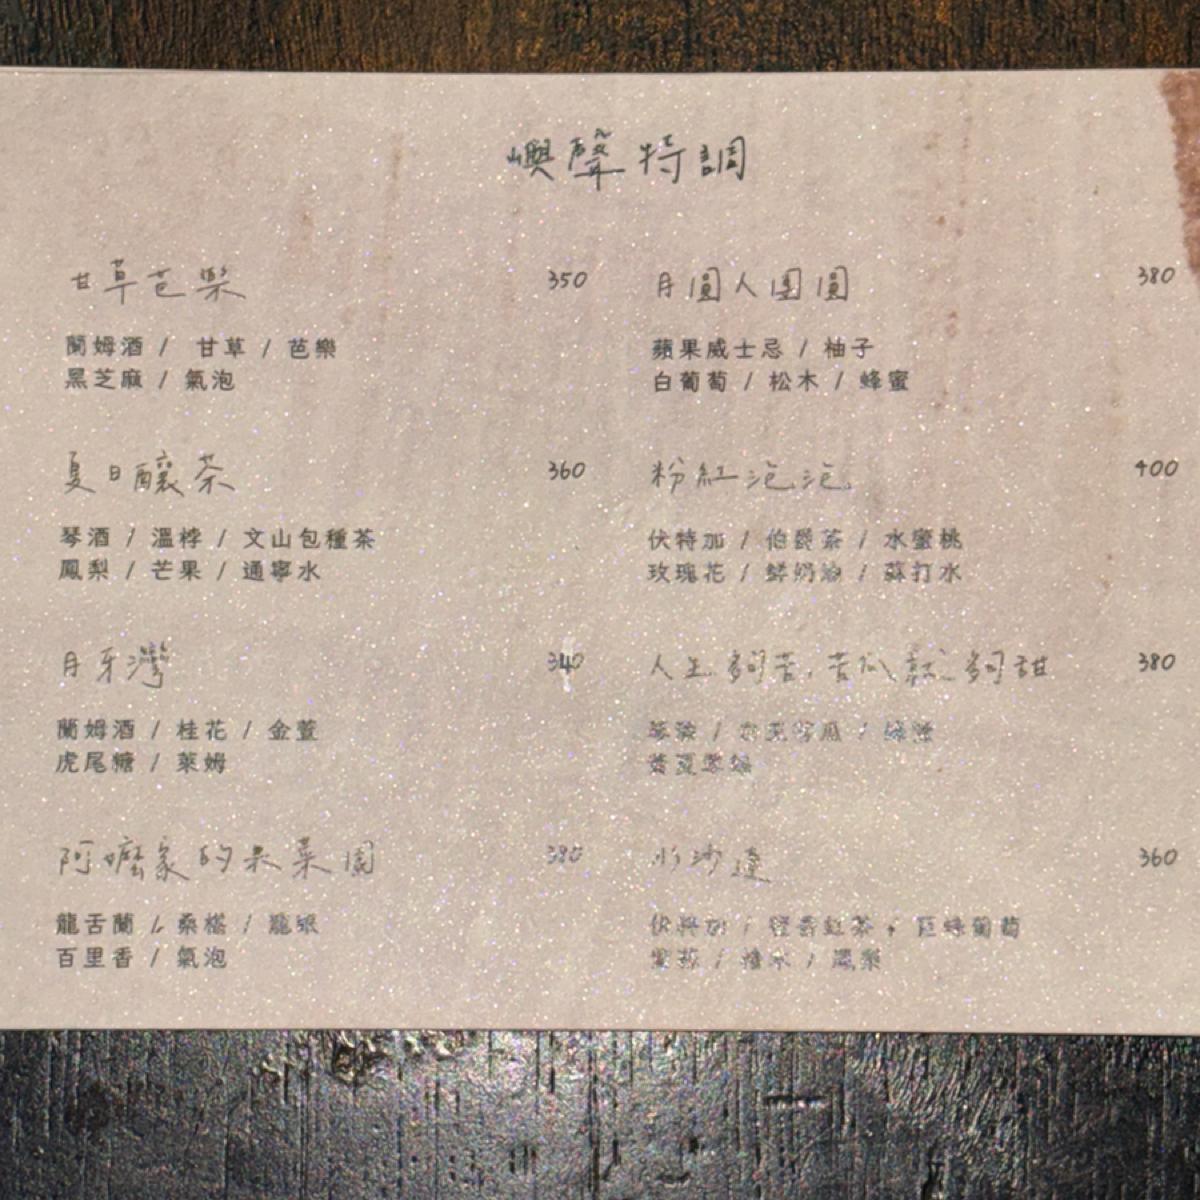 嶼聲特調
甘草芭樂 350
蘭姆酒 / 甘草 / 芭樂
黑芝麻 / 氣泡
夏日釀茶 360
琴酒 / 溫桲 / 文山包種茶
鳳梨 / 芒果 / 通寧水
月牙灣 340
蘭姆酒 / 桂花 / 金萱
虎尾糖 / 萊姆
阿嬤家的果菜園 380
龍舌蘭 / 桑椹 / 龍眼
百里香 / 氣泡
月圓人團圓 380
蘋果威士忌 / 柚子
白葡萄 / 松木 / 蜂蜜
粉紅泡泡 400
伏特加 / 伯爵茶 / 水蜜桃
玫瑰花 / 鮮奶油 / 蘇打水
人生夠苦,苦瓜就夠甜 380
沙達 360
伏特加 / 蜜香紅茶 / 巨峰葡萄
紫蘇 / 檜木 / 鳳梨